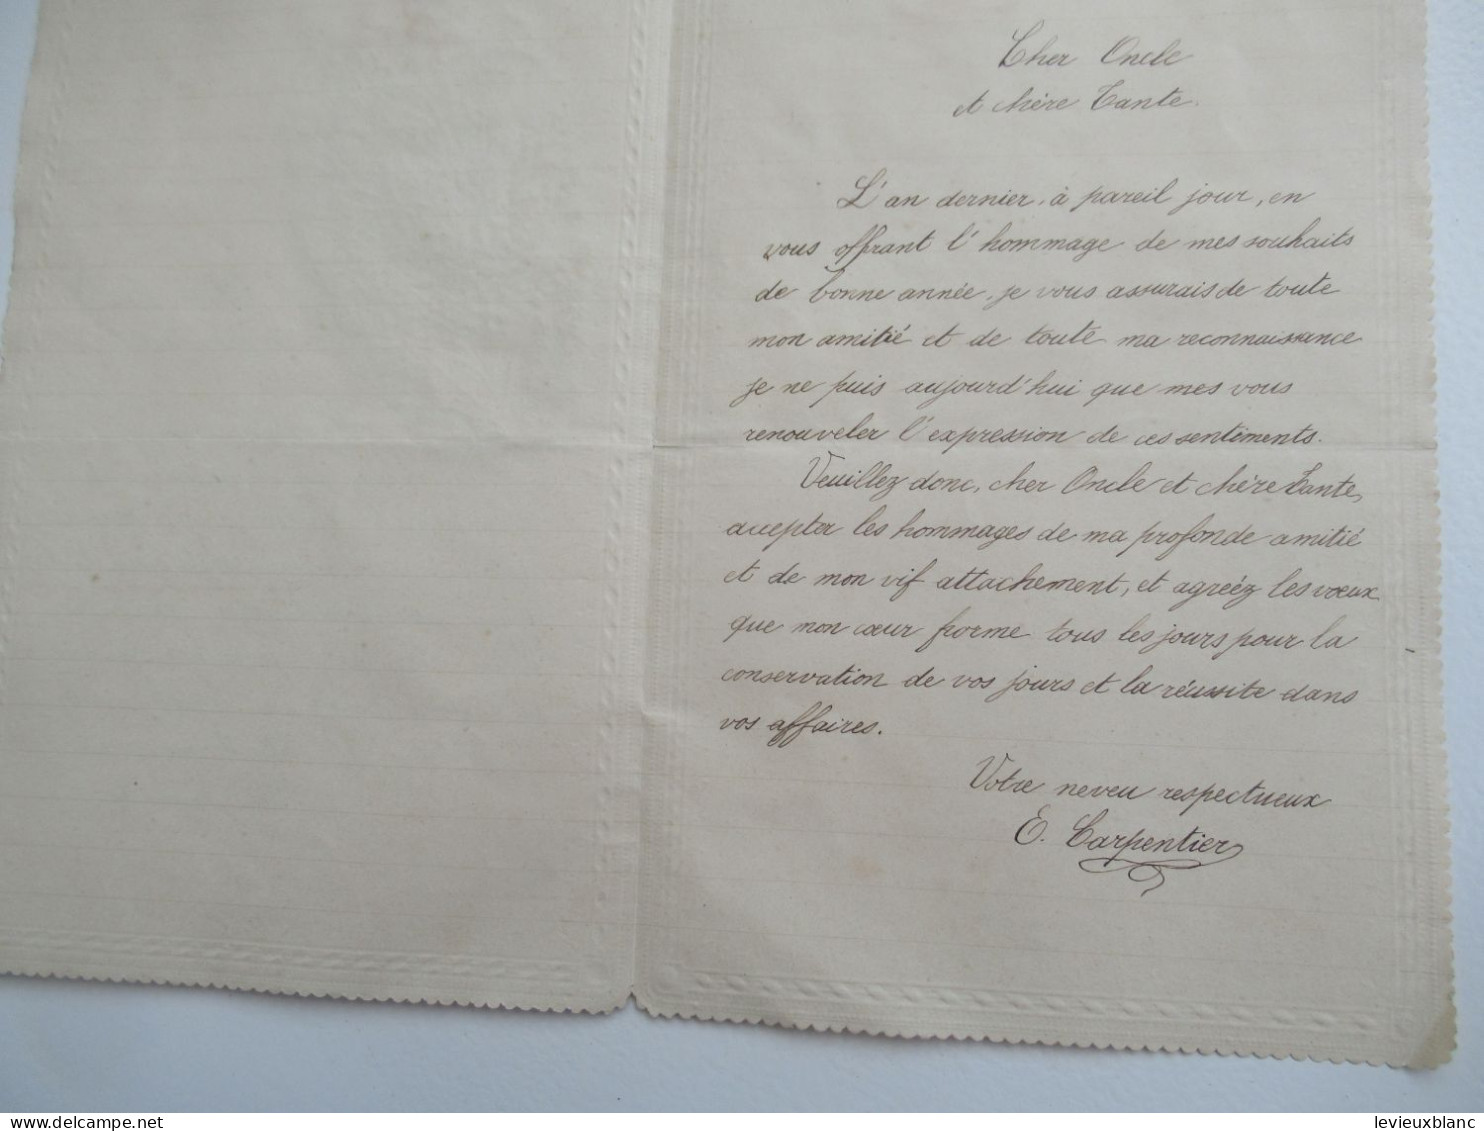 Cher Oncle
et chère Tante.
L'an dernier, à pareil jour, en
vous offrant l'hommage de mes souhaits
de bonne année, je vous assurais de toute
mon amitié et de toute ma reconnaissance
je ne puis aujourd'hui que mes vous
renouveler l'expression de ces sentiments.
Veuillez donc, cher Oncle et chère Tante,
accepter les hommages de ma profonde amitié
et de mon vif attachement, et agréez les vœux
que mon cœur forme tous les jours pour la
conservation de vos jours et la réussite dans
vos affaires.
Votre neveu respectueux
E. Carpentier
Delcampe.net
levieuxblanc